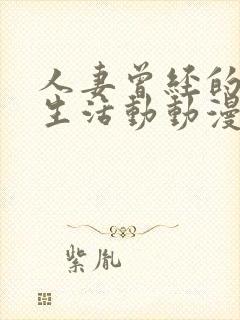 人妻曾经的
生活動動漫
紫胤